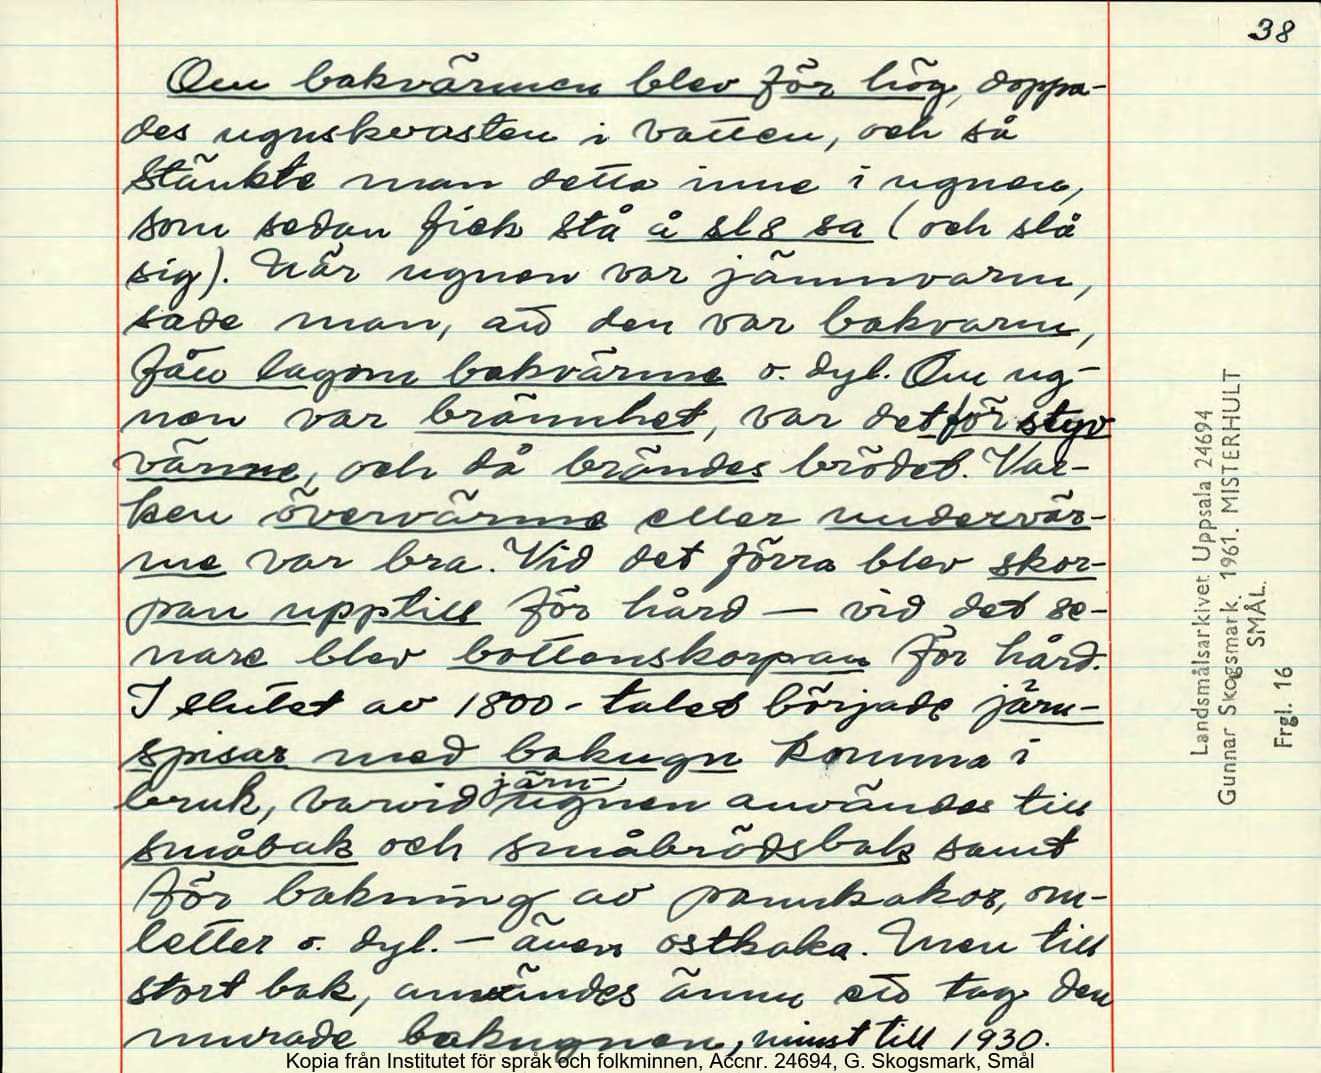 38
Om bakvärmen blev för hög, doppa-
des ugnskvasten i vatten, och så
stänkte man detta inne i ugnen,
som sedan fick stå å sl8 sa (och slå
sig). När ugnen var jämnvarm,
sade man, att den var bakvarm,
fått lagom bakvärme o. dyl. Om ug-
nen var brännhet, var det för styv
värme, och då brändes brödet. Var-
ken övervärme eller undervär-
me var bra. Vid det förra blev skor-
pan upptill för hård — vid det se-
nare blev bottenskorpan för hård.
I slutet av 1800-talet började järn-
spisar med bakugn komma i
bruk, varvid järn-
ugnen användes till
småbak och småbrödsbak samt
för bakning av pannkakor, om-
letter o. dyl. — även ostkaka. Men till
stort bak, användes ännu ett tag den
murade bakugnen, minst till 1930.
Landsmålsarkivet Uppsala 24694
Gunnar Skogsmark. 1961. MISTERHULT
SMÅL.
Frgl. 16
Kopia från Institutet för språk och folkminnen, Accnr. 24694, G. Skogsmark, Smål